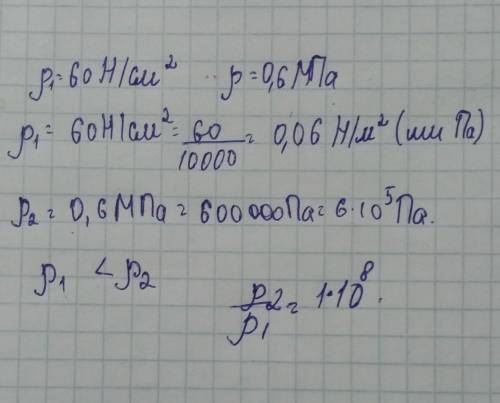 p₁=60Н/см² p=0,6МПа
p₁= 60Н/см²= 60/10000 = 0,06 Н/м² (или Па)
p₂= 0,6МПа= 600000Па= 6·10⁵Па.
p₁ < p₂
p2/p₁ = 1·10⁸.